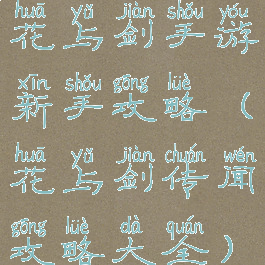 huā yǔ jiàn shǒu yóu
花与剑手游
xīn shǒu gōng lüè
新手攻略（
huā yǔ jiàn chuán wén
花与剑传闻
gōng lüè dà quán
攻略大全）